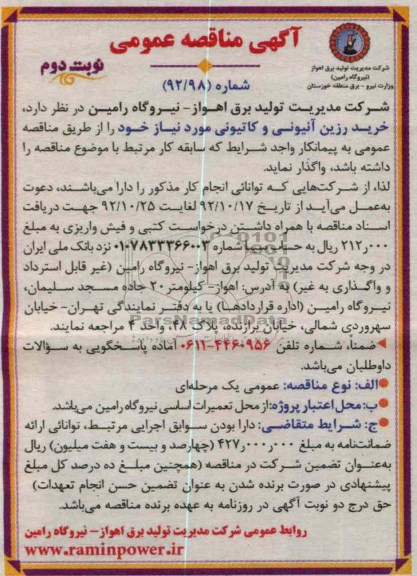 آگهی مناقصه عمومی
نوبت دوم
شماره (۹۲/۹۸)
شرکت مدیریت تولید برق اهواز
(نیروگاه رامین)
وزارت نیرو - برق منطقه خوزستان
شرکت مدیریت تولید برق اهواز- نیروگاه رامین در نظر دارد،
خرید رزین آنیونی و کاتیونی مورد نیاز خود را از طریق مناقصه
عمومی به پیمانکار واجد شرایط که سابقه کار مرتبط با موضوع مناقصه را
داشته باشد، واگذار نماید.
لذا، از شرکت‌هایی که توانائی انجام کار مذکور را دارا می‌باشند، دعوت
به‌عمل می‌آید از تاریخ ۹۲/۱۰/۱۷ لغایت ۹۲/۱۰/۲۵ جهت دریافت
اسناد مناقصه با همراه داشتن درخواست کتبی و فیش واریزی به مبلغ
۲۱۲ر۰۰۰ ریال به حساب سیبا شماره ۰۱۰۷۸۳۳۳۶۶۰۰۳ نزد بانک ملی ایران
در وجه شرکت مدیریت تولید برق اهواز- نیروگاه رامین (غیر قابل استرداد
و واگذاری به غیر) به آدرس: اهواز- کیلومتر۲۰ جاده مسجد سلیمان،
نیروگاه رامین (اداره قراردادها) یا به دفتر نمایندگی تهران- خیابان
سهروردی شمالی، خیابان برازنده، پلاک ۴۸، واحد ۴ مراجعه نمایند.
ضمناً، شماره تلفن ۴۴۶۰۹۵۶-۰۶۱۱ آماده پاسخگویی به سؤالات
داوطلبان می‌باشد.
الف: نوع مناقصه: عمومی یک مرحله‌ای
ب: محل اعتبار پروژه: از محل تعمیرات اساسی نیروگاه رامین می‌باشد.
ج: شرایط متقاضی: دارا بودن سوابق اجرایی مرتبط، توانائی ارائه
ضمانت‌نامه به مبلغ ۴۲۷ر۰۰۰ر۰۰۰ (چهارصد و بیست و هفت میلیون) ریال
به‌عنوان تضمین شرکت در مناقصه (همچنین مبلغ ده درصد کل مبلغ
پیشنهادی در صورت برنده شدن به عنوان تضمین حسن انجام تعهدات)
حق درج دو نوبت آگهی در روزنامه به عهده برنده مناقصه می‌باشد.
روابط عمومی شرکت مدیریت تولید برق اهواز- نیروگاه رامین
www.raminpower.ir